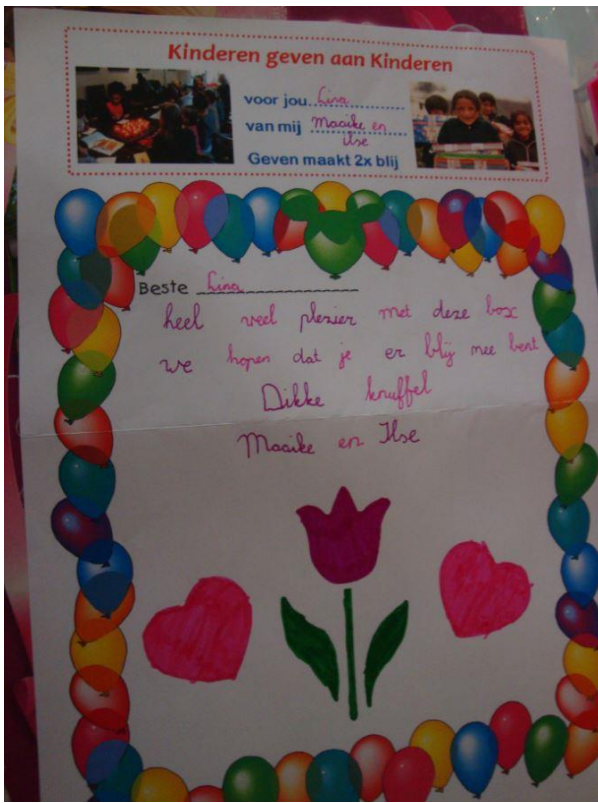 Kinderen geven aan Kinderen
voor jou Lina
van mij Maaike en
ilse
Geven maakt 2x blij
Beste Lina
heel veel plezier met deze box
we hopen dat je er blij mee bent
Dikke knuffel
Maaike en Ilse